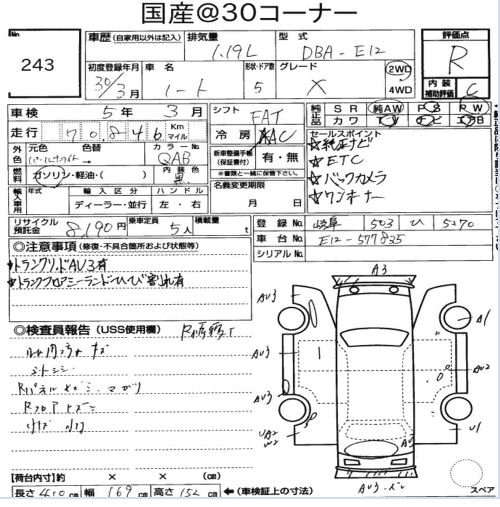 国産@30コーナー
No.
243
車歴 (自家用以外は記入)
排気量
1.19L
型式
DBA-E12
評価点
R
初度登録年月
30年3月
車名
ノート
形状・ドア
5
グレード
X
2WD
4WD
内装補助評価
C
車検
5年3月
シフト
FAT
純正品
SR 純AW PS PW
カワ TV ナビ エアB
走行
70846
Km
マイル
冷房
AAC
セールスポイント
★純正ナビ
★ETC
★バックカメラ
★ワンオーナー
外色
元色
パールホワイト
色替
カラーNo.
QAB
新車整備手帳(保証書付)
有・無
※書類と一緒に保管下さい。
燃料
ガソリン・軽油・( )
内装色
黒
名義変更期限
月 日
輸入車用
年式
輸入区分
ディーラー・並行
ハンドル
左・右
リサイクル預託金
8190円
乗車定員
5人
積載量
t
登録No.
岐阜 503 ひ 5270
車台No.
E12-577835
シリアルNo.
◎注意事項 (修復・不具合箇所および状態等)
★トランクリッドAU3有
★トランクフロアミーランドヘひび割れ有
◎検査員報告 (USS使用欄)
R修復有
シートシミ
Rパネルキズ・マガリ
Rフロアキズ
【荷台内寸】約 × × (cm)
長さ 410 cm 幅 169 cm 高さ 152 cm ←(車検証上の寸法)
A3
AU3
A1
AU3
A2
AU3
UA2
W2
U1
AU3・ズレ
スペア